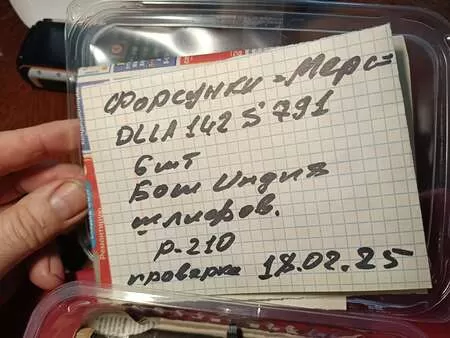 Форсунки - Мерс
DLLA 142 S 791
6 шт
Бош Индия
шлифов.
р-210
проверка 18.02.25